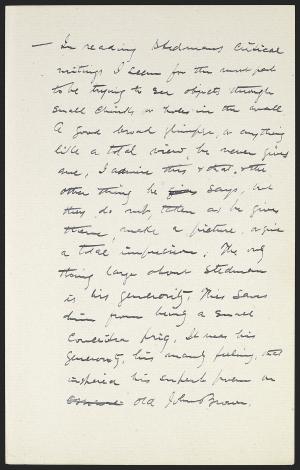 — In reading Stedmans Critical
writings I seem for the most part
to be trying to see objects through
small chinks or holes in the wall
A good broad glimpse, or anything
like a total view, he never gives
one, I admire this & that & the
other thing he says, but
they do not, then as he gives
them, make a picture, or give
a total impression. The only
thing large about Stedman
is his generosity. This saves
him from being a small
conceited prig. It was his
generosity, his manly feeling, that
inspired his superb poem on
old John Brown.